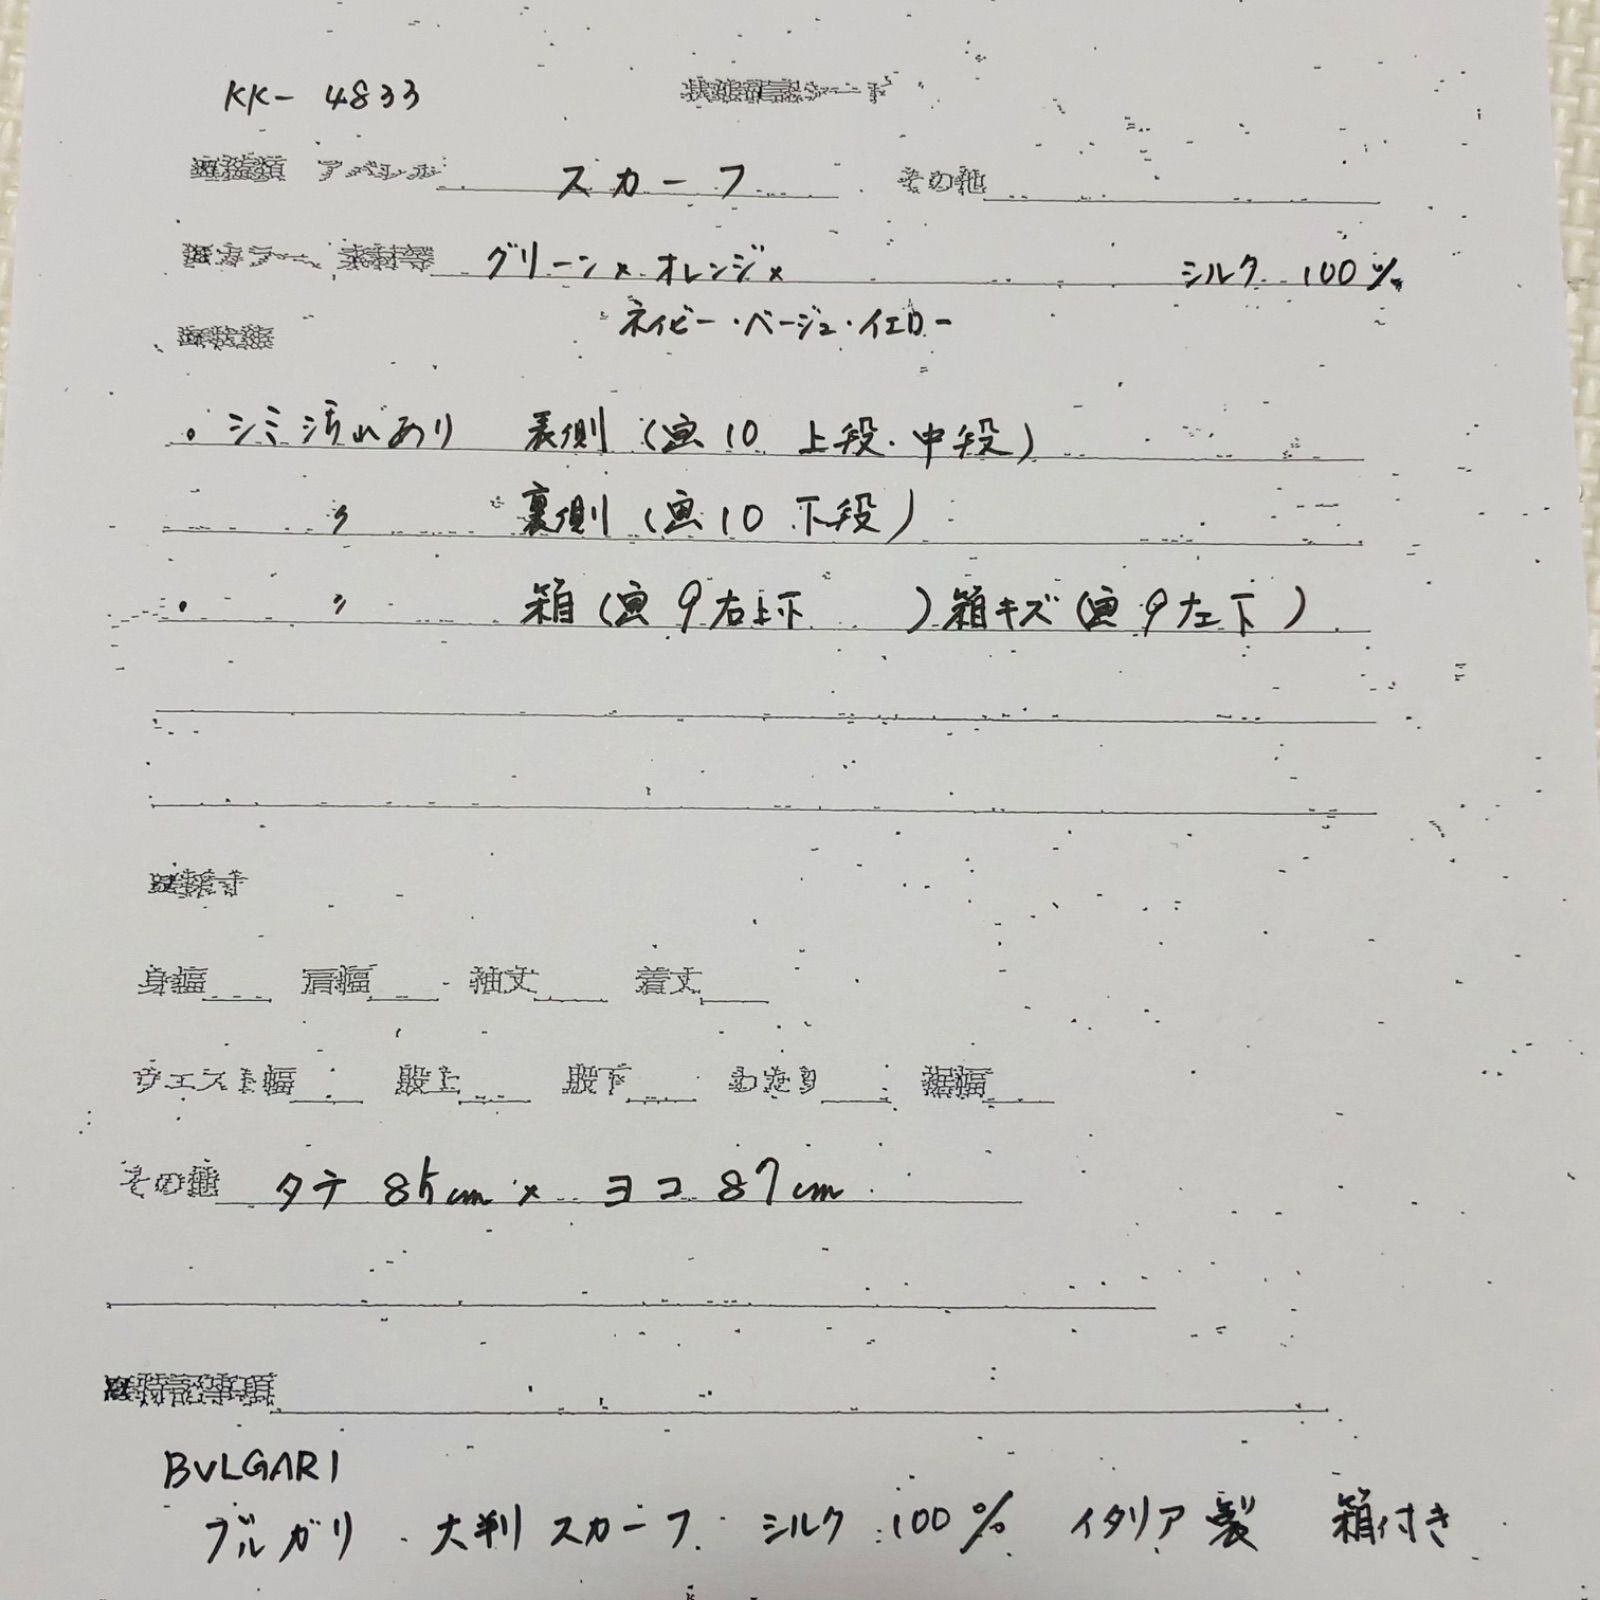 KK- 4833 状態確認シート
アパレル スカーフ その他
カラー、素材等 グリーン×オレンジ× シルク 100%
ネイビー・ベージュ・イエロー
・シミ汚れあり 表側(画10 上段・中段)
〃 裏側(画10 下段)
・ 〃 箱(画9右上下 )箱キズ(画9左下)
採寸
身幅 肩幅 袖丈 着丈
ウエスト幅 股上 股下 わたり 裾幅
その他 タテ 85cm × ヨコ 87cm
特記事項
BVLGARI
ブルガリ 大判スカーフ シルク 100% イタリア製 箱付き